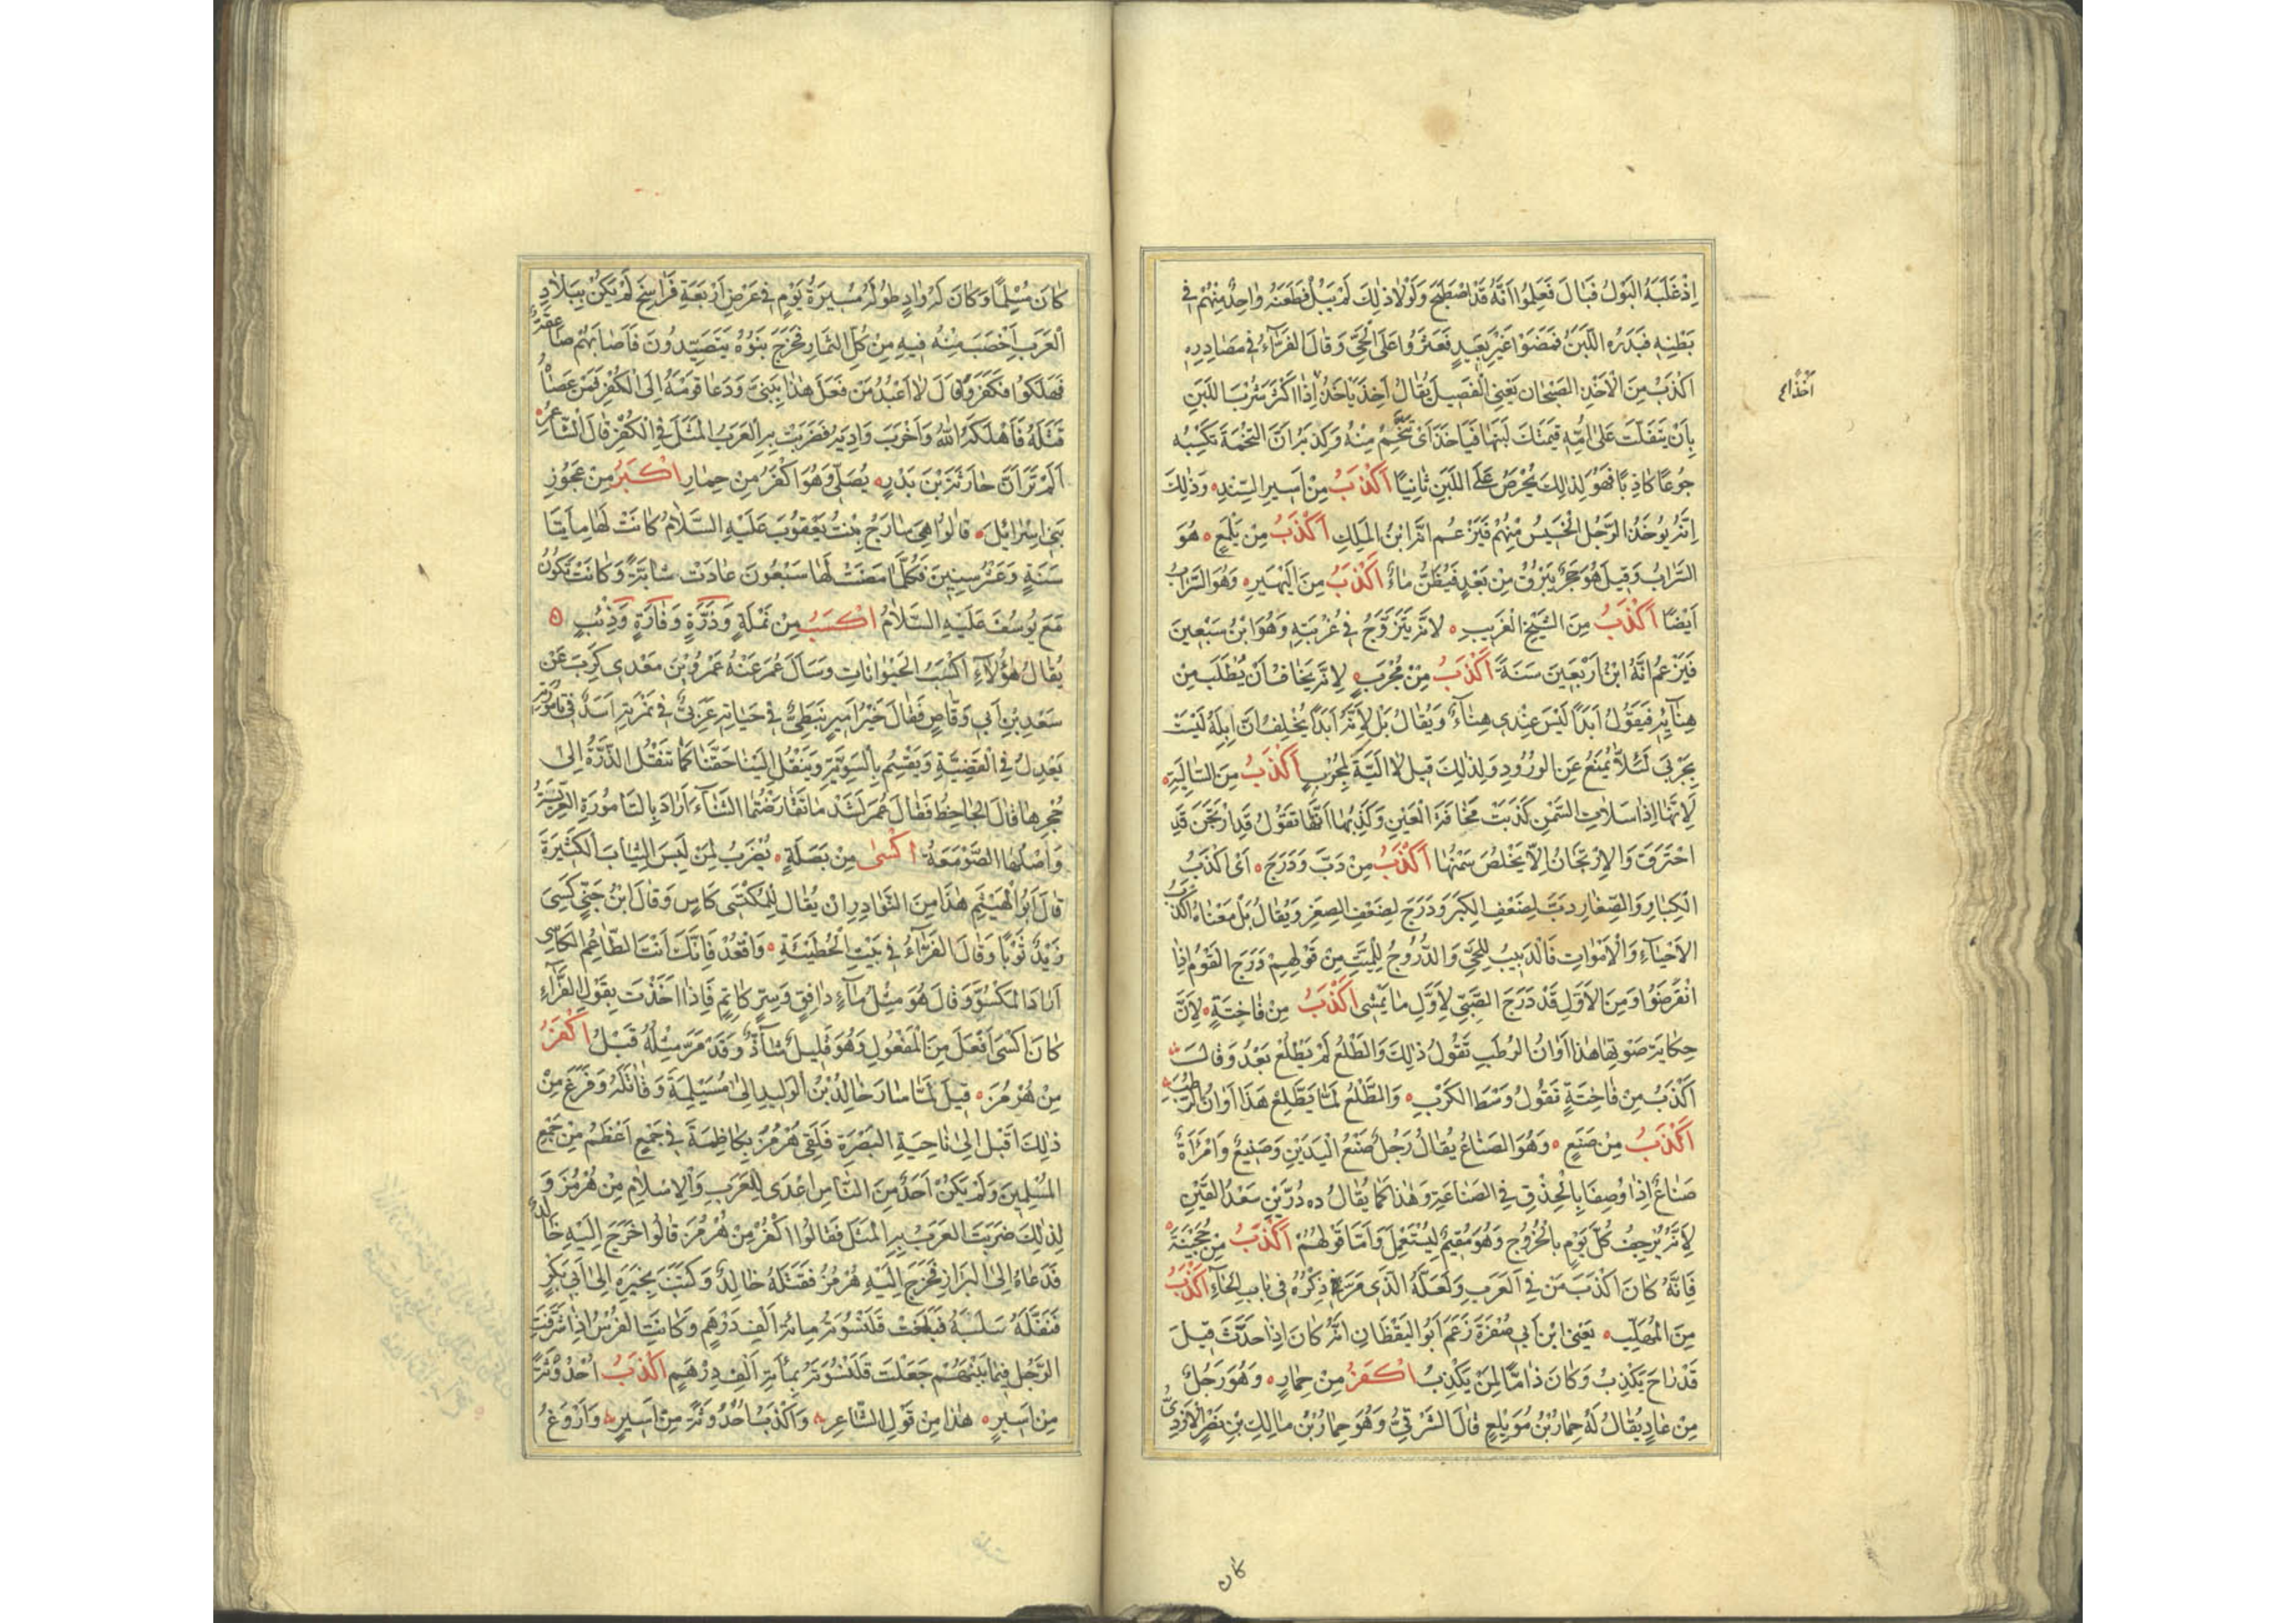 اِذْ غَلَبَهُ البَوْلُ فَبَالَ فَعَلِمُوا اَنَّهُ قَدْ اصْطَبَحَ وَلَوْلَا ذٰلِكَ لَمْ يَبُلْ فَطَعَنَهُ وَاحِدٌ مِنْهُمْ فِي
بَطْنِهِ فَبَدَرَهُ اللَّبَنُ فَمَضَوْا غَيْرَ بَعِيدٍ فَعَثَرُوا عَلَى الْحَيِّ وَقَالَ الفَرَّاءُ فِي مَصَادِرِهِ
اَكْذَبُ مِنَ الْاَخْذِ الصَّبْحَانِ يَعْنِي الفَصِيلَ يُقَالُ اَخِذَ يَأْخَذُ اِذَا اكْثَرَ شُرْبَ اللَّبَنِ
اَخَذًا
بِاَنْ يَتَفَلَّتَ عَلٰى اُمِّهِ فَيَمْتَكَّ لَبَنَهَا فَيَأْخَذَ اَىْ يَتَّخِمَ مِنْهُ وَكِذْبُهُ اَنَّ التُّخَمَةَ تَكْسِبُهُ
جُوعًا كَاذِبًا فَهُوَ لِذٰلِكَ يَحْرِصُ عَلَى اللَّبَنِ ثَانِيًا اَكْذَبُ مِنْ اَسِيرِ السِّنْدِ وَذٰلِكَ
اَنَّهُ يُوخَذُ الرَّجُلُ الْخَسِيسُ مِنْهُمْ فَيَزْعُمُ اَنَّهُ ابْنُ الْمَلِكِ اَكْذَبُ مِنْ يَلْمَعٍ هُوَ
السَّرَابُ وَقِيلَ هُوَ حَجَرٌ يَبْرُقُ مِنْ بَعْدٍ فَيُظَنُّ مَاءً اَكْذَبُ مِنَ الْيَهْيَرِّ وَهُوَ السَّرَابُ
اَيْضًا اَكْذَبُ مِنَ الشَّيْخِ الْغَرِيبِ لِاَنَّهُ يَتَزَوَّجُ فِي غُرْبَتِهِ وَهُوَ ابْنُ سَبْعِينَ
فَيَزْعُمُ اَنَّهُ ابْنُ اَرْبَعِينَ سَنَةً اَكْذَبُ مِنْ مُجْرِبٍ لِاَنَّهُ يَخَافُ اَنْ يُطْلَبَ مِنْ
هِنَائِهِ فَيَقُولُ اَبَدًا لَيْسَ عِنْدِي هِنَاءٌ وَيُقَالُ بَلْ لِاَنَّهُ اَبَدًا يُحْلِفُ اَنَّ اِبِلَهُ لَيْسَتْ
بِجَرْبَى لَئَلَّا يُمْنَعُ عَنِ الوُرُودِ وَلِذٰلِكَ قِيلَ لَا اَلِيَّةَ لِمُجْرِبٍ اَكْذَبُ مِنَ السَّالِيَةِ
لِاَنَّهَا اِذَا سَلَاَتِ السَّمْنَ كَذَبَتْ مَخَافَةَ الْعَيْنِ وَكَذِبُهَا اَنَّهَا تَقُولُ قَدِ ارْتَجَنَ قَدِ
احْتَرَقَ وَالاِرْتِجَانُ اَلَّا يَخْلُصَ سَمْنُهَا اَكْذَبُ مِنْ دَبَّ وَدَرَجَ اَىْ اكْذَبُ
الْكِبَارِ وَالصِّغَارِ دَبَّ لِضَعْفِ الْكِبَرِ وَدَرَجَ لِضَعْفِ الصِّغَرِ وَيُقَالُ بَلْ مَعْنَاهُ اَكْذَبُ
الاَحْيَاءِ وَالْاَمْوَاتِ فَالدَّبِيبُ لِلْحَيِّ وَالدُّرُوجُ لِلْمَيِّتِ مِنْ قَوْلِهِمْ دَرَجَ الْقَوْمُ اِذَا
انْقَرَضُوا وَمِنَ الاَوَّلِ قَدْ دَرَجَ الصَّبِيُّ لِاَوَّلِ مَا يَمْشِى اَكْذَبُ مِنْ فَاخِتَةٍ لِاَنَّ
حِكَايَةَ صَوْتِهَا هٰذَا اَوَانُ الرُّطَبِ تَقُولُ ذٰلِكَ وَالطَّلْعُ لَمْ يَطْلُعْ بَعْدُ وَقَالَ
اَكْذَبُ مِنْ فَاخِتَةٍ تَقُولُ وَسْطَ الكَرَبِ وَالطَّلْعُ لَمَّا يَطَّلِعْ هَذَا اَوَانُ الرُّطَبِ
اَكْذَبُ مِنْ صَنَعٍ وَهُوَ الصَّنَاعُ يُقَالُ رَجُلٌ صَنَعُ الْيَدَيْنِ وَصَنِيعٌ وَامْرَأَةٌ
صَنَاعٌ اِذَا وُصِفَا بِالْحِذْقِ فِي الصَّنَاعَةِ وَهٰذَا كَمَا يُقَالُ دُهْ دُرَّيْنِ سَعْدُ القَيْنِ
لِاَنَّهُ يُرْجِفُ كُلَّ يَوْمٍ بِالْخُرُوجِ وَهُوَ مُقِيمٌ لِيُسْتَعْمَلَ وَاَمَّا قَوْلُهُمْ اَكْذَبُ مِنْ حُجَيْنَةَ
فَاِنَّهُ كَانَ اكْذَبَ مَنْ فِي الْعَرَبِ وَلَعَلَّهُ الَّذِي مَرَّ ذِكْرُهُ فِي بَابِ الْخَاءِ اَكْذَبُ
مِنَ الْمُهَلَّبِ يَعْنِى ابْنَ اَبِي صُفْرَةَ زَعَمَ اَبُو الْيَقْظَانِ اَنَّهُ كَانَ اِذَا حَدَّثَ قِيلَ
قَدْ رَاحَ يَكْذِبُ وَكَانَ ذَامًّا لِمَنْ يَكْذِبُ اكْفَرُ مِنْ حِمَارٍ وَهُوَ رَجُلٌ
مِنْ عَادٍ يُقَالُ لَهُ حِمَارُ بْنُ مُوَيْلِعٍ قَالَ الشَّرْقِيُّ وَهُوَ حِمَارُ بْنُ مَالِكِ بْنِ نَصْرٍ الْاَزْدِيُّ
كان
كَانَ مُسْلِمًا وَكَانَ لَهُ وَادٍ طُولُهُ مَسِيرَةُ يَوْمٍ فِي عَرْضِ اَرْبَعَةِ فَرَاسِخَ لَمْ يَكُنْ بِبِلَادِ
الْعَرَبِ اَخْصَبَ مِنْهُ فِيهِ مِنْ كُلِّ الثِّمَارِ فَخَرَجَ بَنُوهُ يَتَصَيَّدُونَ فَاَصَابَهُمْ صَاعِقَةٌ
فَهَلَكُوا فَكَفَرَ وَقَالَ لَا اَعْبُدُ مَنْ فَعَلَ هٰذَا بِبَنِيَّ وَدَعَا قَوْمَهُ اِلَى الْكُفْرِ فَمَنْ عَصَاهُ
قَتَلَهُ فَاَهْلَكَهُ اللّٰهُ وَاَخْرَبَ وَادِيَهُ فَضَرَبَتْ بِهِ الْعَرَبُ الْمَثَلَ فِي الْكُفْرِ قَالَ الشَّاعِرُ
اَلَمْ تَرَ اَنَّ حَارِثَةَ بْنَ بَدْرٍ يُصَلِّي وَهُوَ اكْفَرُ مِنْ حِمَارِ اكْبَرُ مِنْ عَجُوزِ
بَنِي اِسْرَائِيلَ قَالُوا هِيَ شَارَحُ بِنْتُ يَعْقُوبَ عَلَيْهِ السَّلَامُ كَانَتْ لَهَا مِأَيَتَا
سَنَةٍ وَعَشْرُ سِنِينَ فَكُلَّمَا مَضَتْ لَهَا سَبْعُونَ عَادَتْ شَابَّةً وَكَانَتْ تَكُونُ
مَعَ يُوسُفَ عَلَيْهِ السَّلَامُ اكْسَبُ مِنْ نَمْلَةٍ وَذَرَّةٍ وَفَارَةٍ وَذِئْبٍ
يُقَالُ هٰؤُلَاءِ اكْسَبُ الْحَيْوَانَاتِ وَسَاَلَ عُمَرَ عَنْهُ عَمْرُو بْنَ مَعْدِي كَرِبَ عَنْ
سَعْدِ بْنِ اَبِي وَقَّاصٍ فَقَالَ خَيْرُ اَمِيرٍ نَبَطِيٌّ فِي حَيَاتِهِ عَرَبِيٌّ فِي نَمِرَتِهِ اَسَدٌ فِي تَامُورَتِهِ
يَعْدِلُ فِي الْقَضِيَّةِ وَيَقْسِمُ بِالسَّوِيَّةِ وَيَنْقُلُ اِلَيْنَا حَقَّنَا كَمَا تَنْقُلُ الذَّرَّةُ اِلٰى
حُجْرِهَا قَالَ الْجَاحِظُ فَقَالَ عُمَرُ لَشَدَّ مَا تَقَارَضْتُمَا الثَّنَاءَ اَرَادَ بِالتَّامُورَةِ العِرِّيسَةَ
وَاَصْلُهَا الصَّوْمَعَةُ اكْسٰى مِنْ بَصَلَةٍ يُضْرَبُ لِمَنْ لَبِسَ الثِّيَابَ الْكَثِيرَةَ
قَالَ اَبُو الْهَيْثَمِ هٰذَا مِنَ النَّوَادِرِ اَنْ يُقَالَ لِلْمُكْتَسِى كَاسٍ وَقَالَ ابْنُ جِنِّي كَسِىَ
زَيْدٌ ثَوْبًا وَقَالَ الفَرَّاءُ فِي بَيْتِ الْحُطَيْئَةِ وَاقْعُدْ فَاِنَّكَ اَنْتَ الطَّاعِمُ الكَاسِى
اَرَادَ الْمَكْسُوَّ وَقَالَ هُوَ مِثْلُ مَاءٍ دَافِقٍ وَسِرٍّ كَاتِمٍ فَاِذَا اَخَذْتَ بِقَوْلِ الفَرَّاءِ
كَانَ اكْسٰى اَفْعَلَ مِنَ الْمَفْعُولِ وَهُوَ قَلِيلٌ شَاذٌّ وَقَدْ مَرَّ مِثْلُهُ قَبْلُ اكْفَرُ
مِنْ هُرْمُزَ قِيلَ لَمَّا سَارَ خَالِدُ بْنُ الْوَلِيدِ اِلٰى مُسَيْلِمَةَ وَقَاتَلَهُ وَفَرَغَ مِنْ
ذٰلِكَ اَقْبَلَ اِلٰى نَاحِيَةِ البَصْرَةِ فَلَقِيَ هُرْمُزَ بِكَاظِمَةَ فِي جَمْعٍ اَعْظَمَ مِنْ جَمْعِ
الْمُسْلِمِينَ وَلَمْ يَكُنْ اَحَدٌ مِنَ النَّاسِ اَعْدَى لِلْعَرَبِ وَالْاِسْلَامِ مِنْ هُرْمُزَ وَ
لِذٰلِكَ ضَرَبَتِ الْعَرَبُ بِهِ الْمَثَلَ فَقَالُوا اكْفَرُ مِنْ هُرْمُزَ قَالُوا خَرَجَ اِلَيْهِ خَالِدٌ
فَدَعَاهُ اِلَى الْبِرَازِ فَخَرَجَ اِلَيْهِ هُرْمُزُ فَقَتَلَهُ خَالِدٌ وَكَتَبَ بِخَبَرِهِ اِلٰى اَبِي بَكْرٍ
فَنَفَّلَهُ سَلَبَهُ فَبَلَغَتْ قَلَنْسُوَتُهُ مِائَةَ اَلْفِ دِرْهَمٍ وَكَانَتِ الفُرْسُ اِذَا شَرُفَتِ
الرَّجُلَ فِيمَا بَيْنَهُمْ جَعَلَتْ قَلَنْسُوَتَهُ بِمِأَئَةِ اَلْفِ دِرْهَمٍ اَكْذَبُ اُحْدُوثَةً
مِنْ اَسِيرٍ هٰذَا مِنْ قَوْلِ الشَّاعِرِ وَاَكْذَبُ اُحْدُوثَةً مِنْ اَسِيرٍ وَاَرْوَغُ